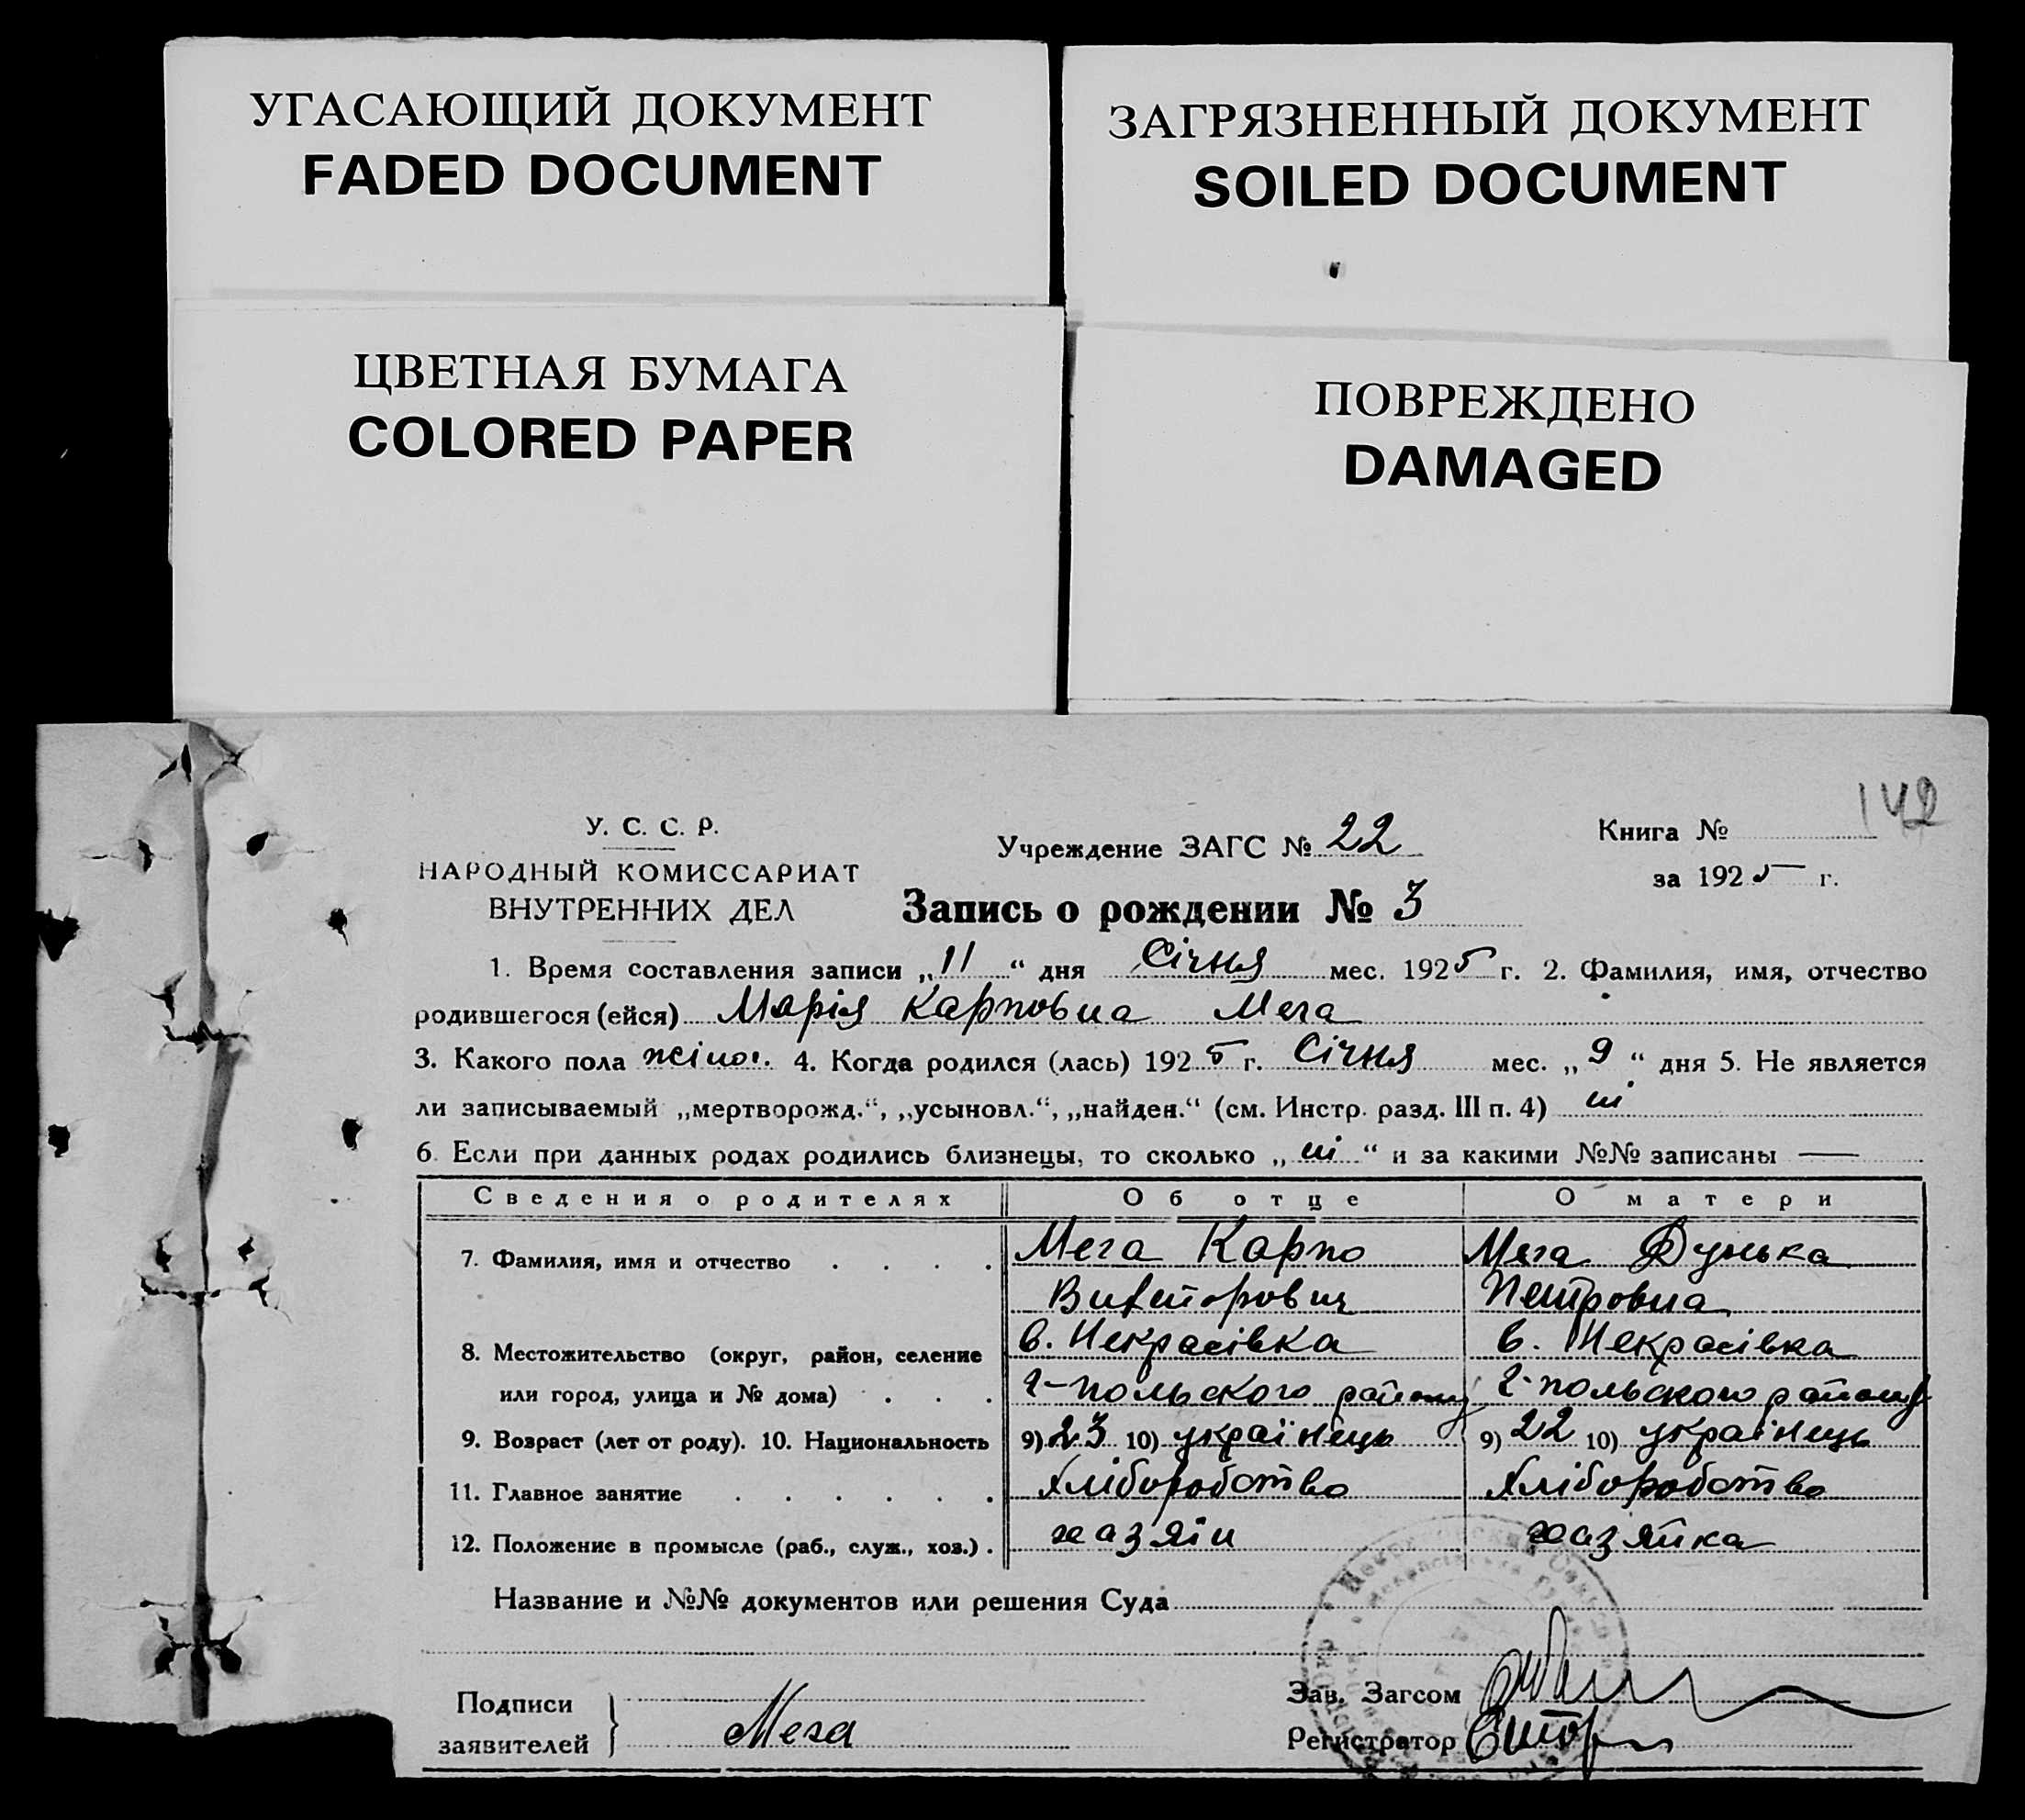 УГАСАЮЩИЙ ДОКУМЕНТ
FADED DOCUMENT
ЗАГРЯЗНЕННЫЙ ДОКУМЕНТ
SOILED DOCUMENT
ЦВЕТНАЯ БУМАГА
COLORED PAPER
ПОВРЕЖДЕНО
DAMAGED
142
У. С. С. Р.
НАРОДНЫЙ КОМИССАРИАТ
ВНУТРЕННИХ ДЕЛ
Учреждение ЗАГС № 22
Книга №
за 1925 г.
Запись о рождении № 3
1. Время составления записи „11“ дня Січня мес. 1925 г. 2. Фамилия, имя, отчество
родившегося (ейся) Марія Карповна Мега
3. Какого пола жіноч. 4. Когда родился (лась) 1925 г. Січня мес. „9“ дня 5. Не является
ли записываемый „мертворожд.“, „усыновл.“, „найден.“ (см. Инстр. разд. III п. 4) ні
6. Если при данных родах родились близнецы, то сколько „ні“ и за какими №№ записаны —
Сведения о родителях Об отце О матери
7. Фамилия, имя и отчество . . . . Мега Карпо Мега Дунька
Викторович Петровна
8. Местожительство (округ, район, селение в. Некрасівка в. Некрасівка
или город, улица и № дома) . . . г-польского району г-польского району
9. Возраст (лет от роду). 10. Национальность 9) 23 10) українець 9) 22 10) українець
11. Главное занятие . . . . . . Хліборобство Хліборобство
12. Положение в промысле (раб., служ., хоз.) . хазяїн хазяйка
Название и №№ документов или решения Суда
Подписи
заявителей } Мега
Зав. Загсом
Регистратор